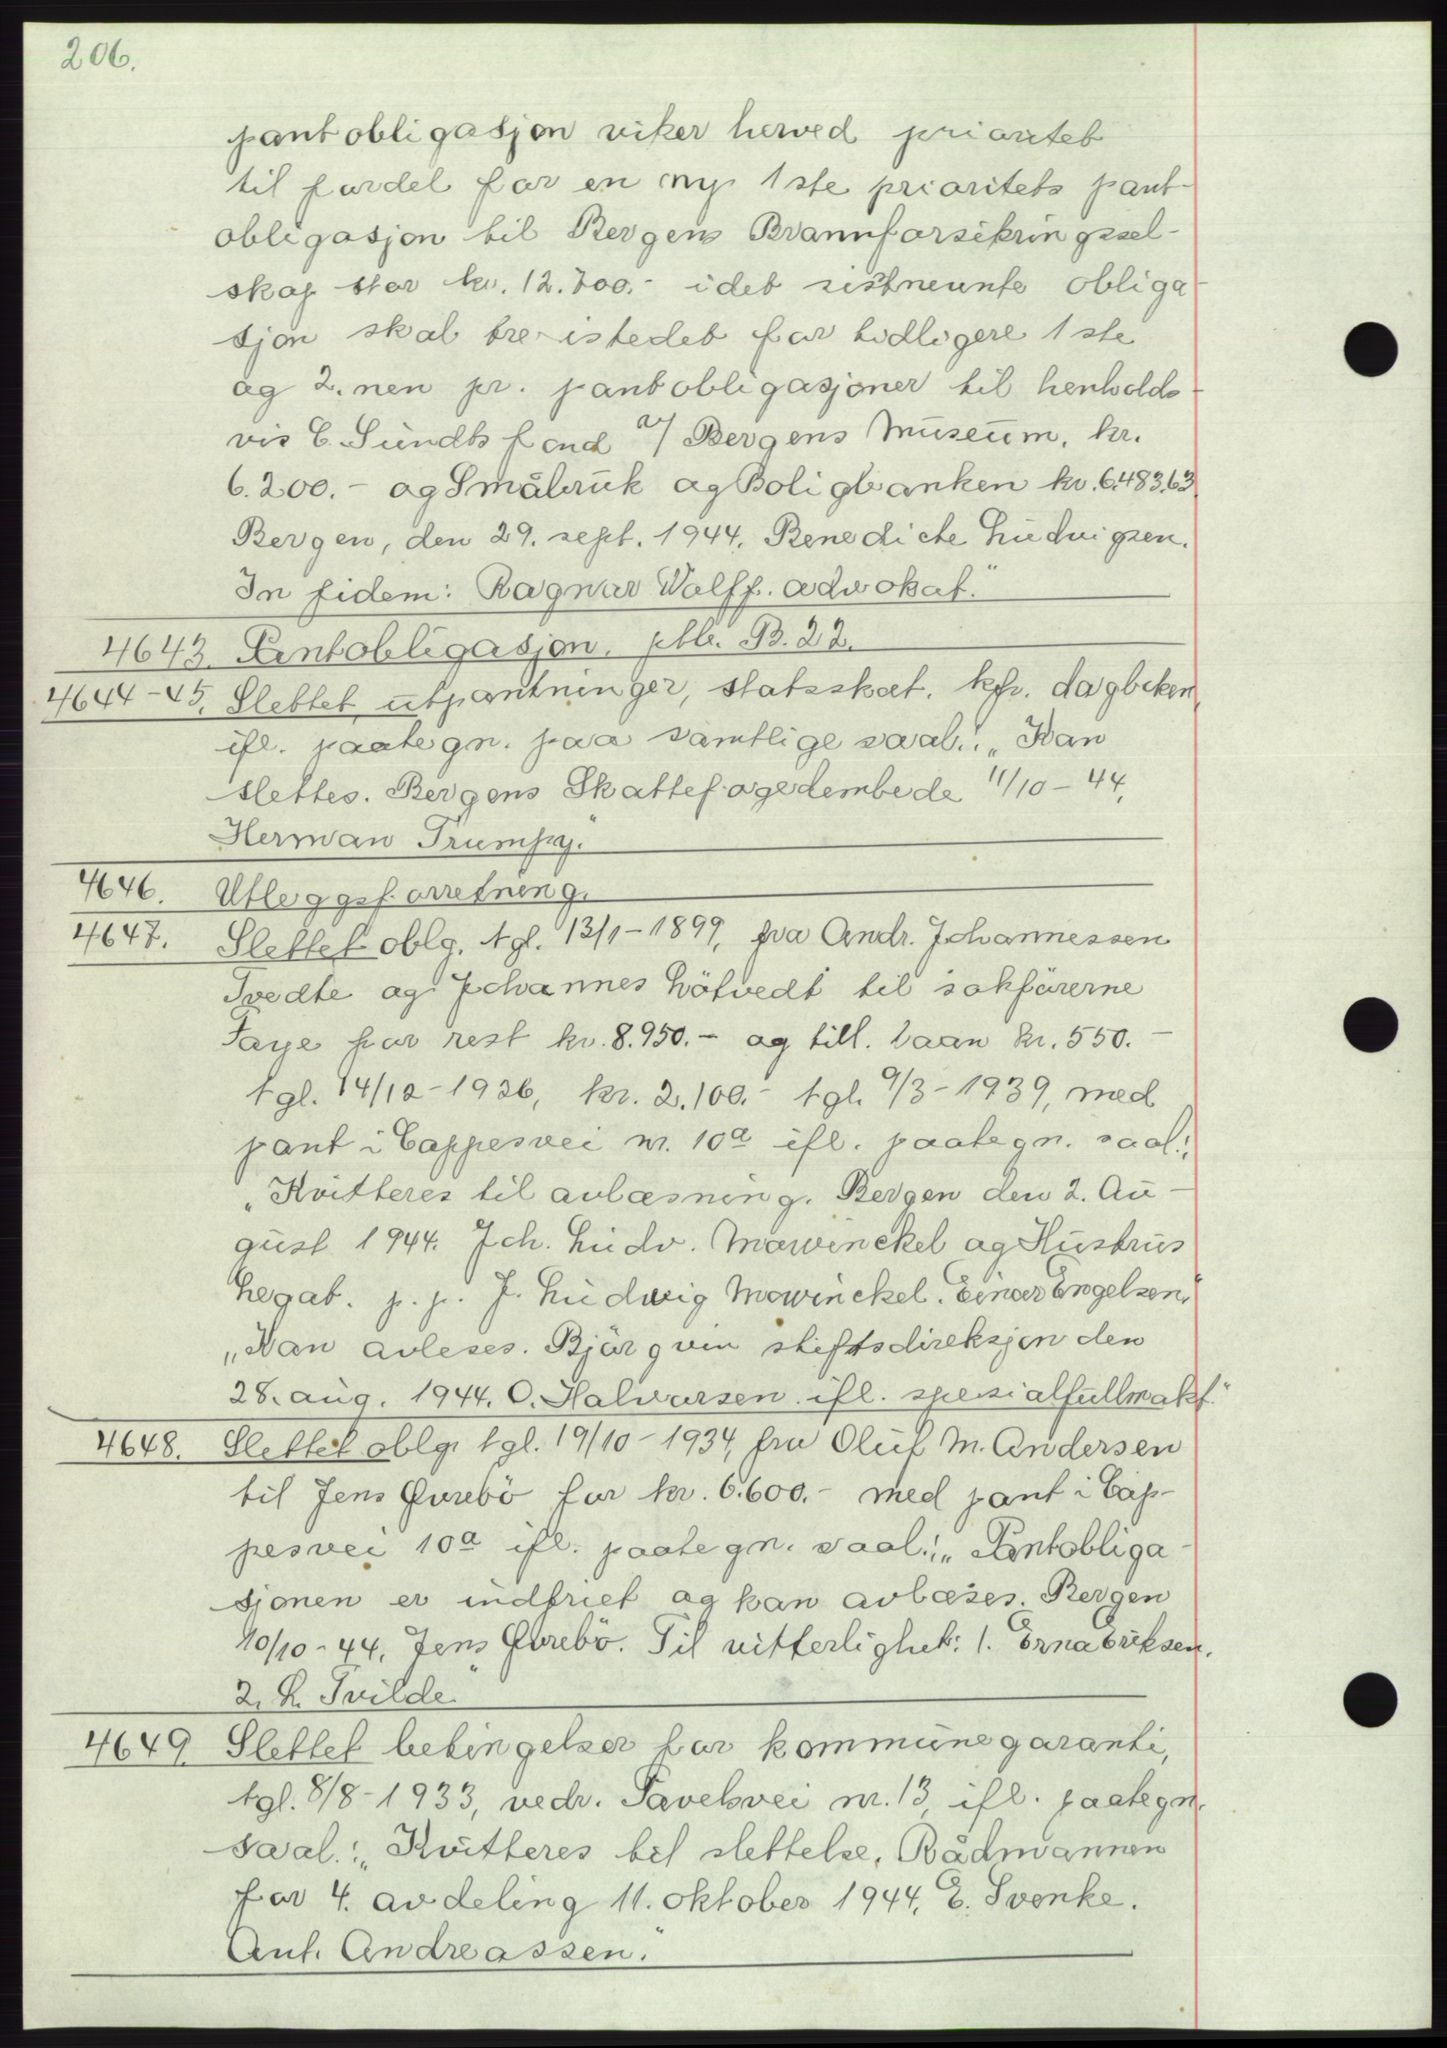 206.
pantobligasjon viker herved prioritet
til fordel for en ny 1ste prioritets pant-
obligasjon til Bergens Brannforsikringssel-
skap stor kr. 12.700.- idet sistnevnte obliga-
sjon skal tre istedet for tidligere 1ste
og 2.nen pr. pantobligasjoner til henholds-
vis C. Sundts fond a/ Bergens Museum. kr.
6.200.- og Småbruk og Boligbanken kr. 6.483,63
Bergen, den 29. sept. 1944. Benedicte Ludvigsen.
In fidem: Ragnar Wolff. advokat."
4643. Pantobligasjon. ptbr. B. 22.
4644-45. Slettet utpantninger, statsskat. kfr. dagboken
ifl. paategn. paa samtlige saal.: „Kan
slettes. Bergens Skattefogedembede 11/10-44.
Herman Trumpy."
4646. Utleggsforretning.
4647. Slettet oblg. tgl. 13/1-1899, fra Andr. Johannessen
Tvedte og Johannes Løtvedt til sakførerne
Faye for rest kr. 8.950.- og till. laan kr. 550.-
tgl. 14/12-1926, kr. 2.100.- tgl. 9/3-1939, med
pant i Cappesvei nr. 10a ifl. paategn. saal.:
„Kvitteres til avlæsning. Bergen den 2. Au-
gust 1944. Joh. Ludv. Mowinckel og Hustrus
Legat. p.p. J. Ludwig Mowinckel. Einar Engelsen."
„Kan avleses. Bjørgvin stiftsdireksjon den
28. aug. 1944. O. Halvorsen ifl. spesialfullmakt."
4648. Slettet oblg. tgl. 19/10-1934, fra Oluf M. Andersen
til Jens Øvrebö for kr. 6.600.- med pant i Cap-
pesvei 10a ifl. paategn. saal.: „Pantobliga-
sjonen er indfriet og kan avlæses. Bergen
10/10-44. Jens Øvrebö. Til vitterlighet: 1. Erna Eriksen.
2. L. Tvilde"
4649. Slettet betingelser for kommunegaranti,
tgl. 8/8-1933, vedr. Pavelsvei nr. 13, ifl. paategn.
saal.: „Kvitteres til slettelse. Rådmannen
for 4. avdeling 11. oktober 1944. E. Svonke.
Ant. Andreassen."